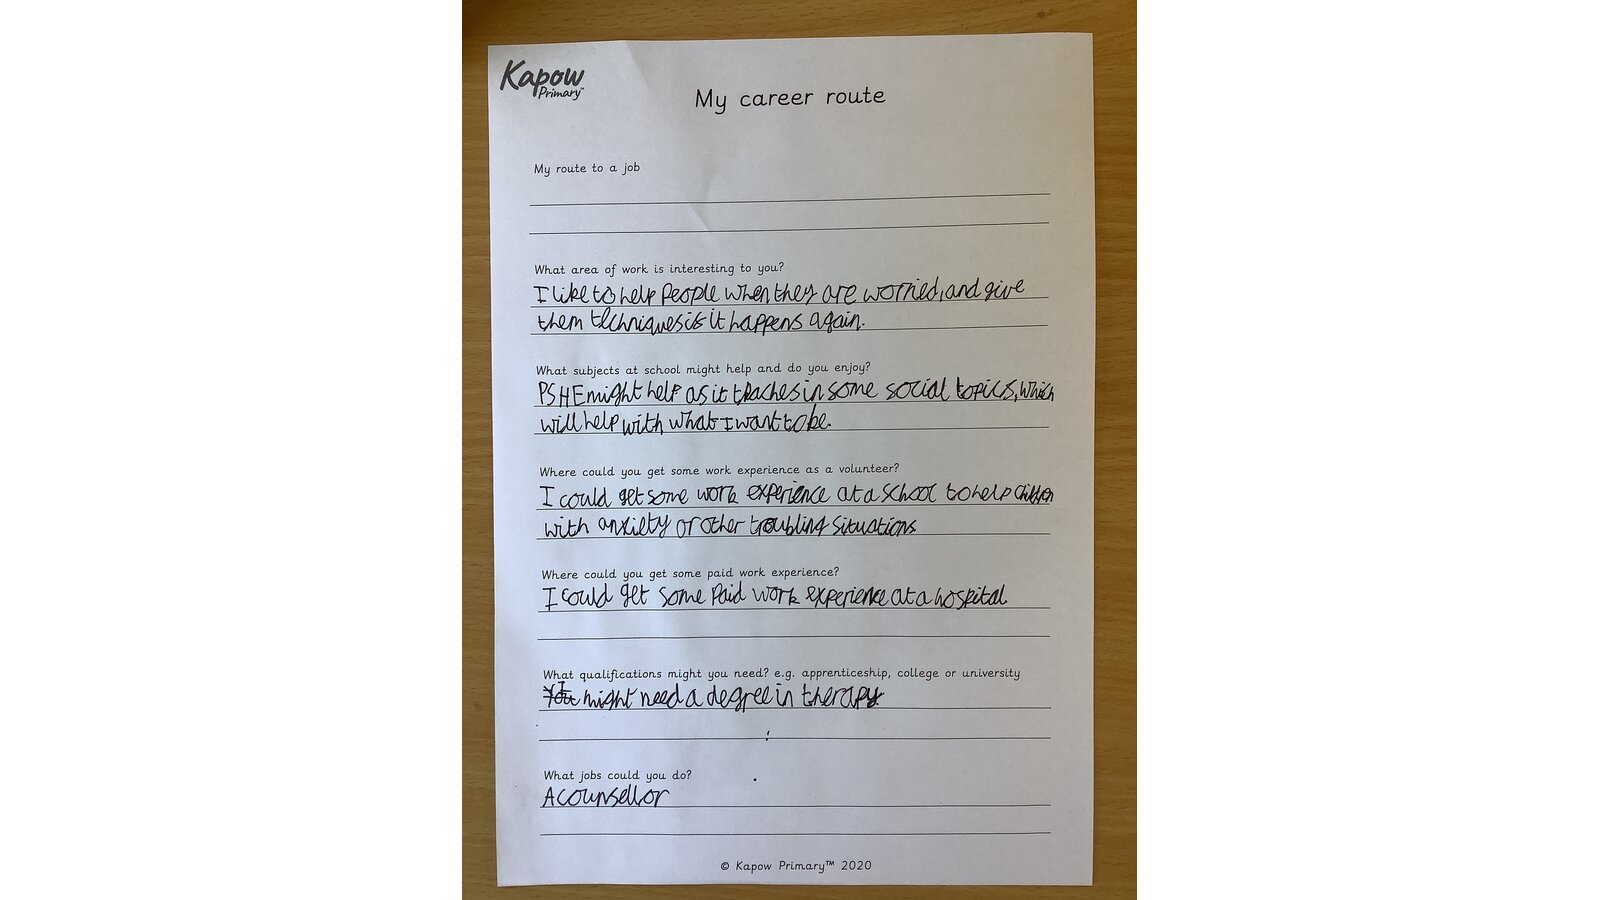 Kapow
Primary™
My career route
My route to a job
What area of work is interesting to you?
I like to help people when they are worried, and give
them techniques if it happens again.
What subjects at school might help and do you enjoy?
PSHE might help as it teaches in some social topics, which
will help with what I want to be.
Where could you get some work experience as a volunteer?
I could get some work experience at a school to help children
with anxiety or other troubling situations
Where could you get some paid work experience?
I could get some paid work experience at a hospital
What qualifications might you need? e.g. apprenticeship, college or university
I might need a degree in therapy.
What jobs could you do?
A counsellor
© Kapow Primary™ 2020